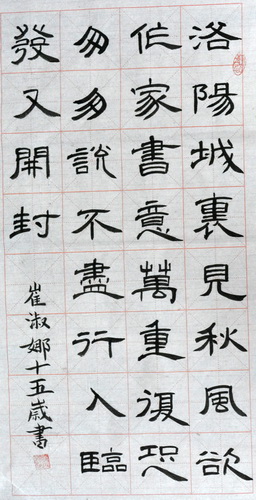 洛陽城裏見秋風欲
作家書意萬重復恐
匆匆說不盡行人臨
發又開封
崔淑娜十五歲書